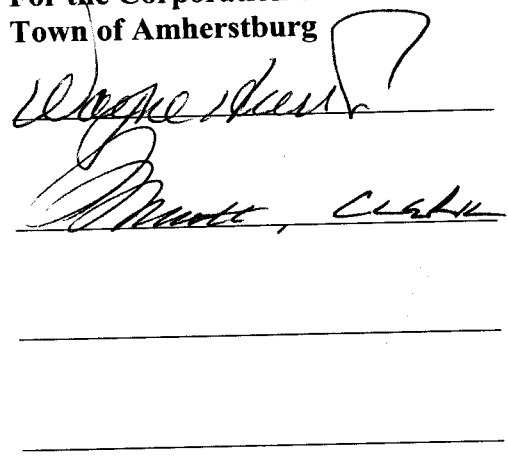 For the Corporation
Town of Amherstburg
Wayne Hurst
, CLERK